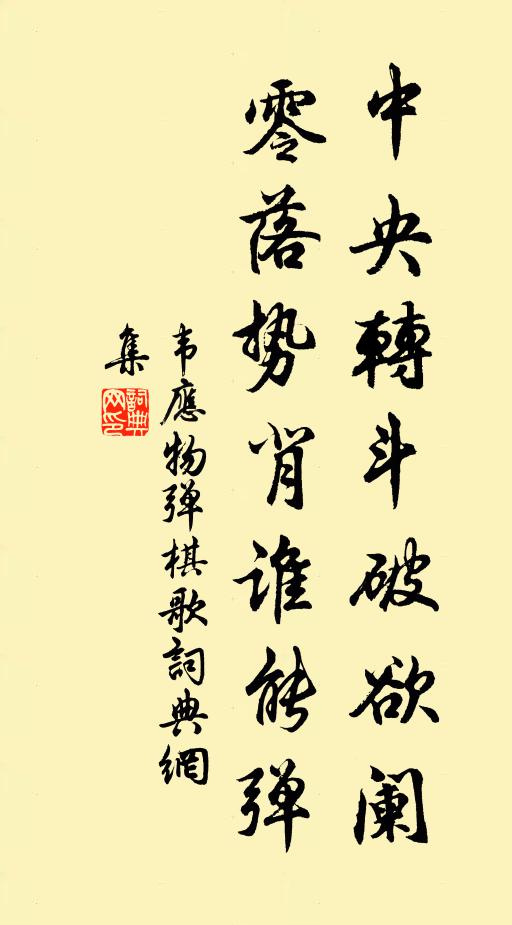 中央轉斗破欲阑
零落势背谁能弹
韦應物弹棋歌詞典網
集
詞典
网印